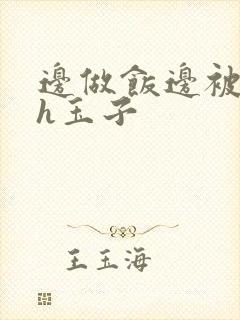 邊做飯邊被
h玉子
王玉海